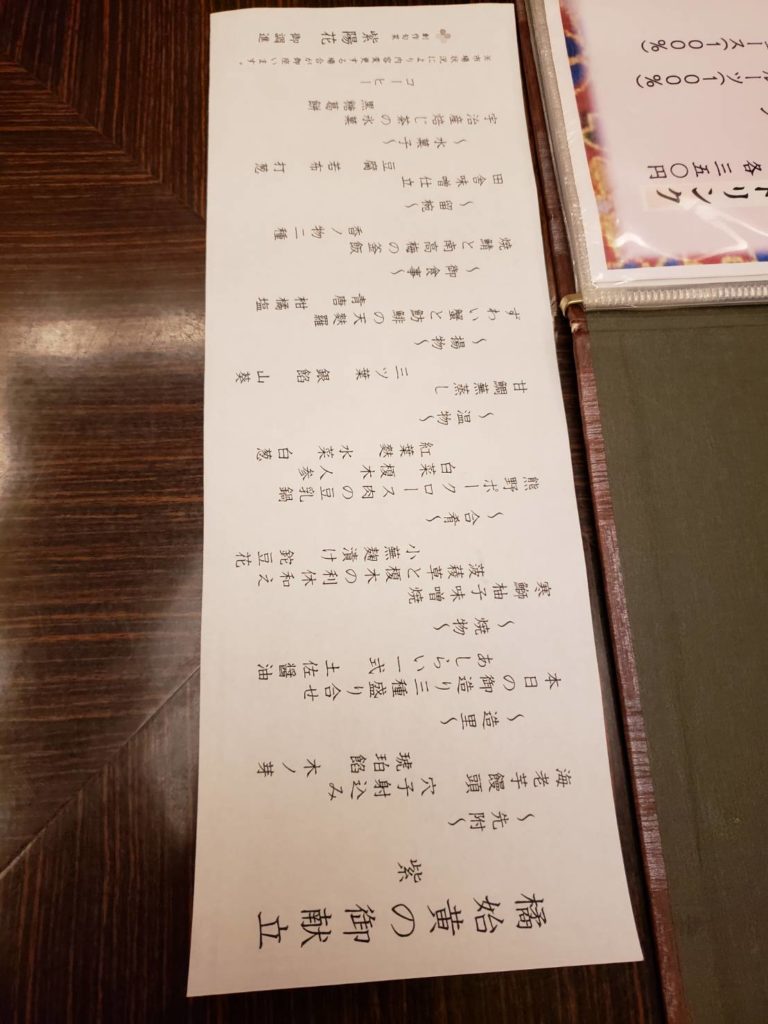 橘始黄の御献立
紫
～先附～
海老芋饅頭　穴子射込み
琥珀餡　木ノ芽
～造里～
本日の御造り三種盛り合せ
あしらい一式　土佐醤油
～焼物～
寒鰤柚子味噌焼
菠薐草と榎木の利休和え
小蕪麹漬け　鉈豆花
～合肴～
熊野ポークロース肉の豆乳鍋
白菜　榎木　人参
紅葉麩　水菜　白葱
～温物～
甘鯛蕪蒸し
三ツ葉　銀餡　山葵
～揚物～
ずわい蟹と魴鮄の天麩羅
青唐　柑橘塩
～御食事～
焼鯖と南高梅の釜飯
香ノ物二種
～留椀～
田舎味噌仕立
豆腐　若布　打葱
～水菓子～
宇治産焙じ茶の氷菓
黒糖葛餅
コーヒー
※市場状況により内容変更する場合が御座います。
創作旬菜　紫陽花　御調進
ース(100%)
ルーツ(100%)
ドリンク
各三五〇円